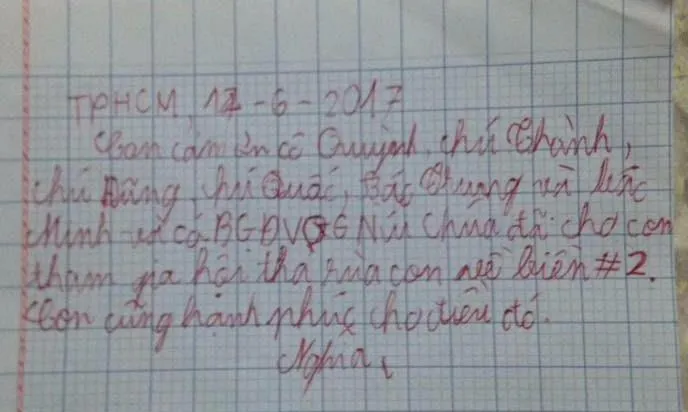 TPHCM, 17-6-2017
Con cảm ơn cô Quỳnh, chú Thành,
chú Đăng, chú Quốc, Bác Trung và bác
Minh và cả BGĐVQG Núi Chúa đã cho con
tham gia hội thả rùa con về biển #2.
Con cũng hạnh phúc cho điều đó.
Nghĩa